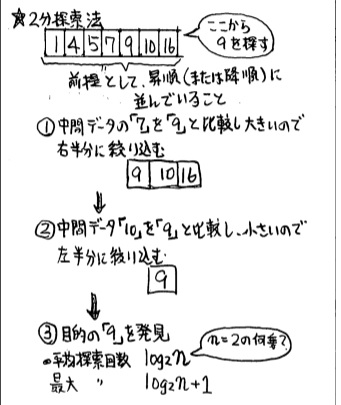 ☆2分探索法
1 4 5 7 9 10 16
ここから
9を探す
前提として、昇順(または降順)に
並んでいること
①中間データの「7」を「9」と比較し大きいので
右半分に絞り込む
9 10 16
②中間データ「10」を「9」と比較し、小さいので
左半分に絞り込む
9
③目的の「9」を発見
・平均探索回数 log₂n
n=2の何乗?
最大 〃 log₂n+1